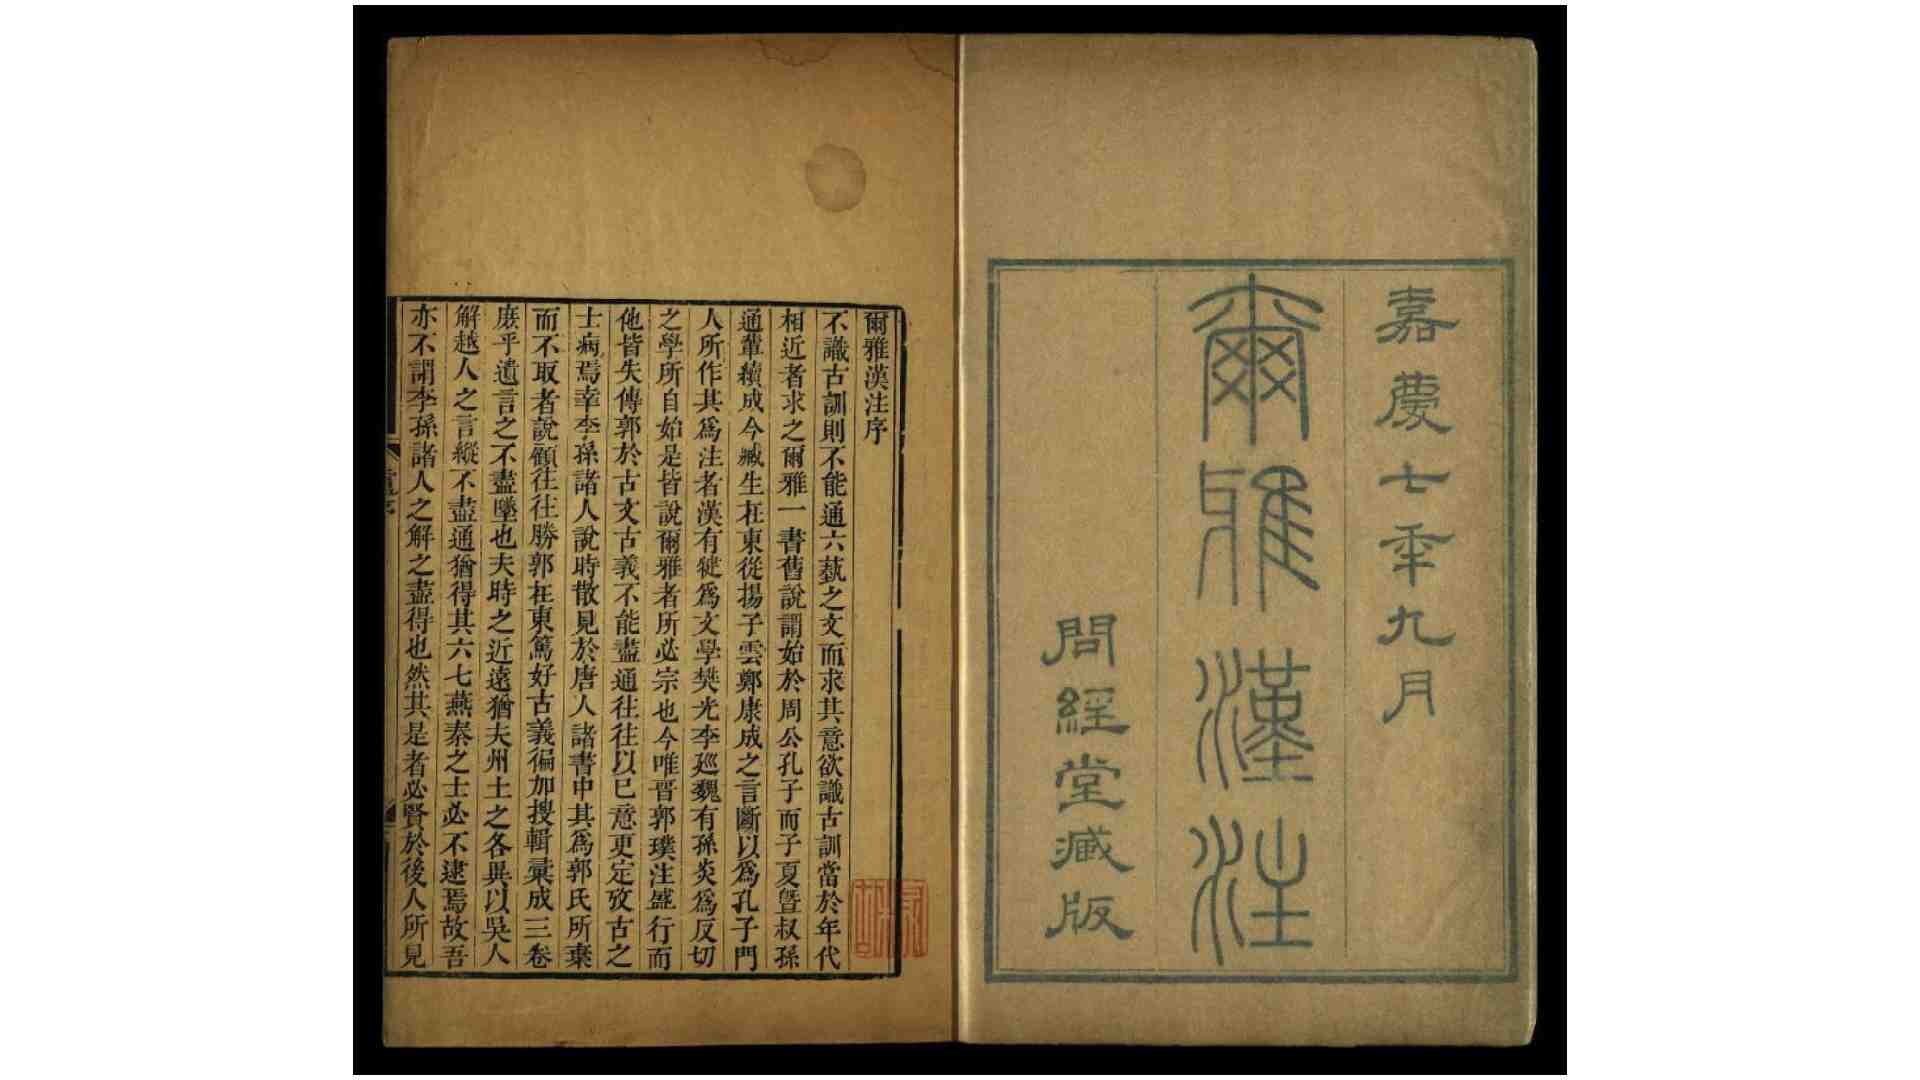 嘉慶七秊九月
爾雅漢注
問經堂臧版
爾雅漢注序
不識古訓則不能通六埶之文而求其意欲識古訓當於年代
相近者求之爾雅一書舊說謂始於周公孔子而子夏曁叔孫
通輩續成今臧生在東從揚子雲鄭康成之言斷以爲孔子門
人所作其爲注者漢有犍爲文學樊光李廵魏有孫炎爲反切
之學所自始是皆說爾雅者所必宗也今唯晋郭璞注盛行而
他皆失傳郭於古文古義不能盡通往往以已意更定攷古之
士病焉幸李孫諸人說時散見於唐人諸書中其爲郭氏所棄
而不取者說顧往往勝郭在東篤好古義徧加搜輯彙成三卷
庶乎遺言之不盡墜也夫時之近遠猶夫州土之各異以吳人
解越人之言縱不盡通猶得其六七燕秦之士必不逮焉故吾
亦不謂李孫諸人之解之盡得也然其是者必賢於後人所見